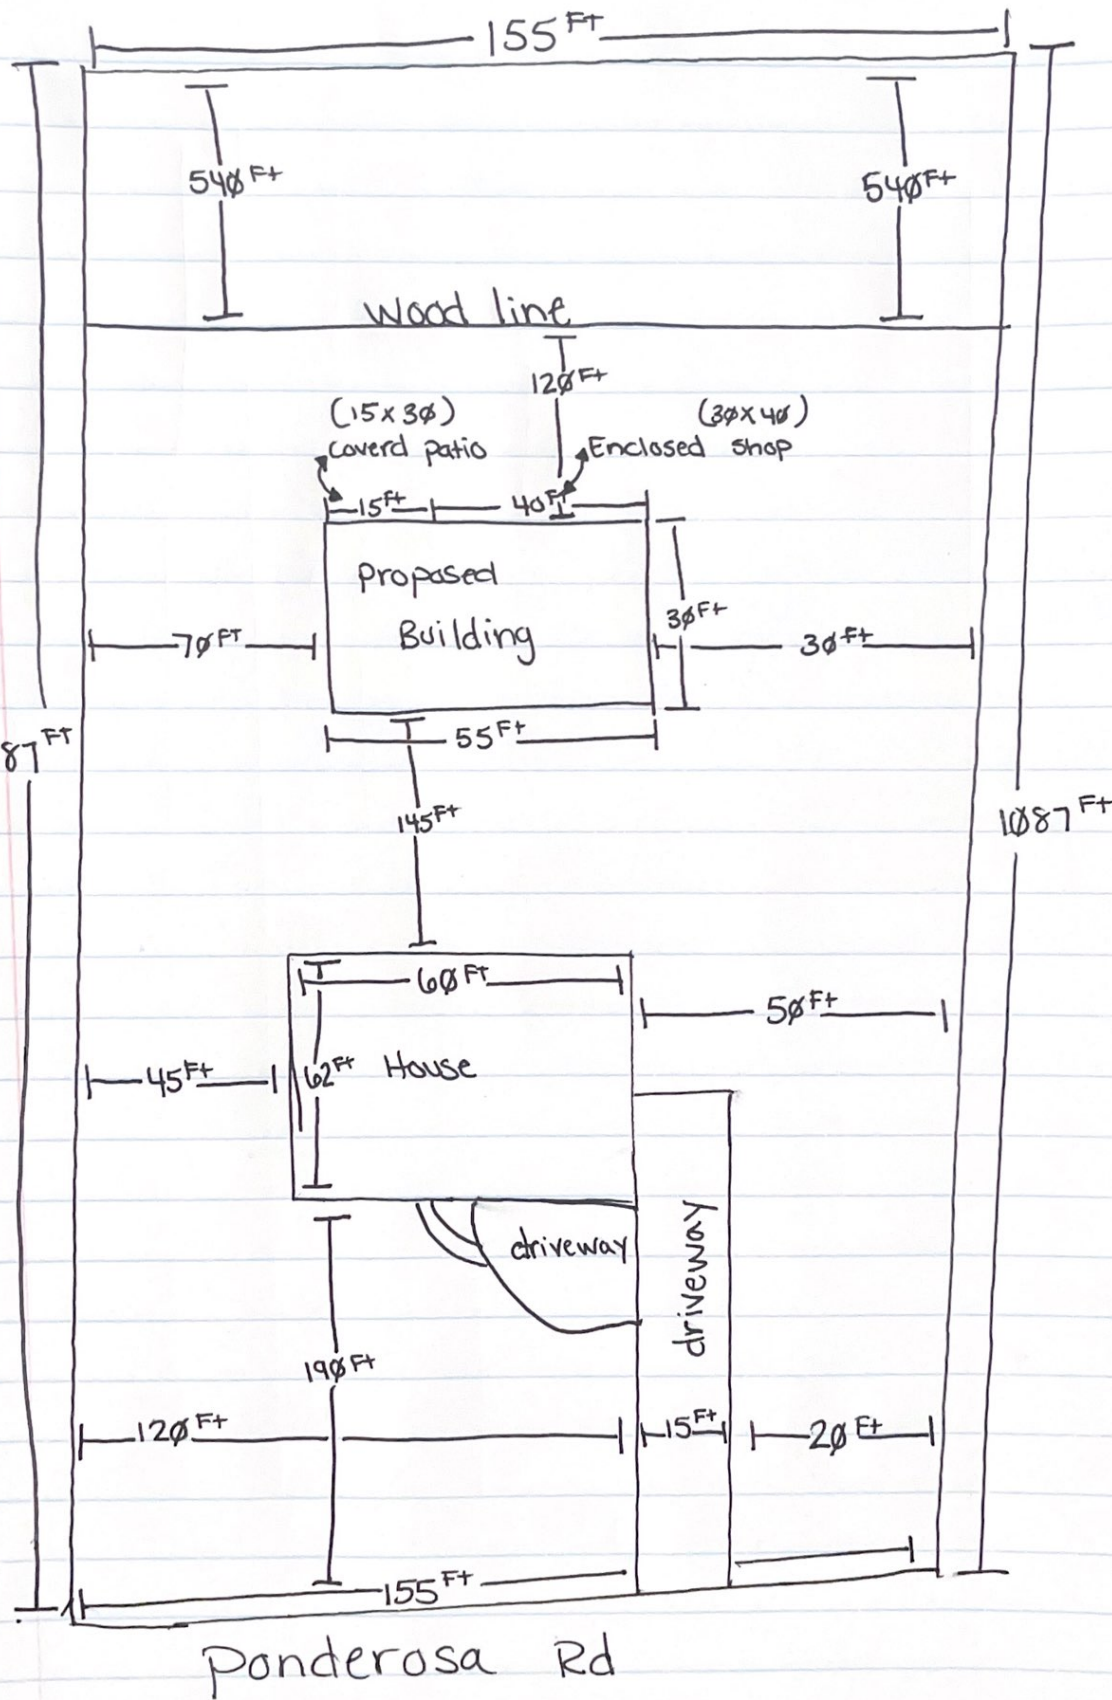 155 Ft
540 Ft
540 Ft
Wood line
120 Ft
(15 x 30)
(30 x 40)
Coverd patio
Enclosed Shop
15 Ft
40 Ft
Proposed
Building
30 Ft
70 FT
30 Ft
55 Ft
87 FT
145 Ft
1087 Ft
60 Ft
50 Ft
45 Ft
62 Ft
House
driveway
driveway
190 Ft
120 Ft
15 Ft
20 Ft
155 Ft
Ponderosa Rd